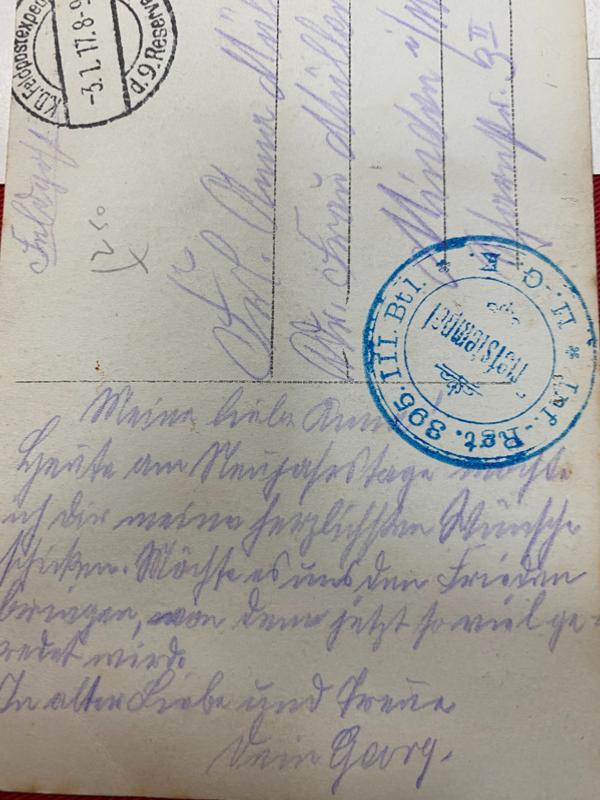 K.D. Feldpostexped
-3.1.17. 8-9
d. 9. Reserve
Feldpost
Frl. Anna
Frau Müller
Minden i/
II.-G.-E.
* Inf.-Rgt. 395. III Btl. *
Notstempel
Meine liebe Anna
Heute am Neujahrstage möchte
ich dir meine herzlichsten Wünsche
schicken. Möchte es uns den Frieden
bringen, von dem jetzt so viel ge-
redet wird.
In alter Liebe und Treue
Dein Georg.